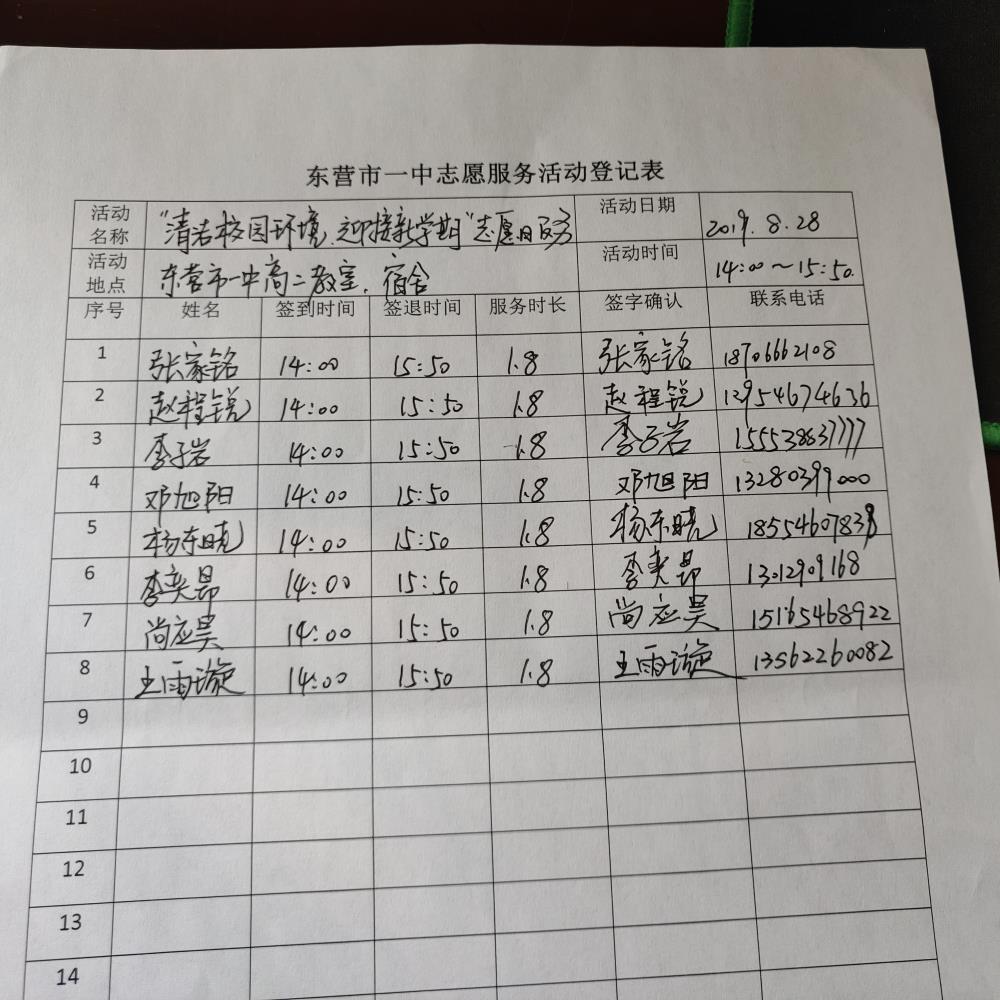 东营市一中志愿服务活动登记表
活动名称 "清洁校园环境,迎接新学期"志愿服务 活动日期 2019.8.28
活动地点 东营市一中高二教室、宿舍 活动时间 14:00~15:50.
序号 姓名 签到时间 签退时间 服务时长 签字确认 联系电话
1 张家铭 14:00 15:50 1.8 张家铭 18706662108
2 赵程锐 14:00 15:50 1.8 赵程锐 12954674636
3 李子岩 14:00 15:50 1.8 李子岩 155538637777
4 邓旭阳 14:00 15:50 1.8 邓旭阳 13280399000
5 杨东晓 14:00 15:50 1.8 杨东晓
6 李奕昂 14:00 15:50 1.8 李奕昂 13012909168
7 尚应昊 14:00 15:50 1.8 尚应昊 15165468922
8 王雨璇 14:00 15:50 1.8 王雨璇 13562260082
9
10
11
12
13
14